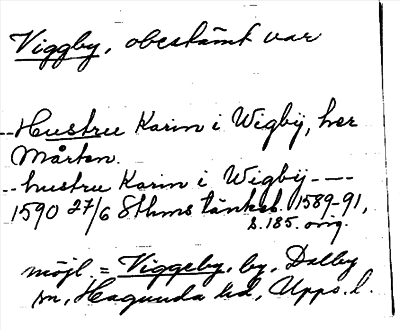 Viggby, obestämt var
--Hustru Karin i Wigbÿ, her
Mårten.
--hustru Karin i Wigbij ----
1590 27/6 Sthms tänkeb. 1589-91,
s. 185. orig.
möjl. = Viggeby, by, Dalby
sn, Hagunda hd, Upps. l.